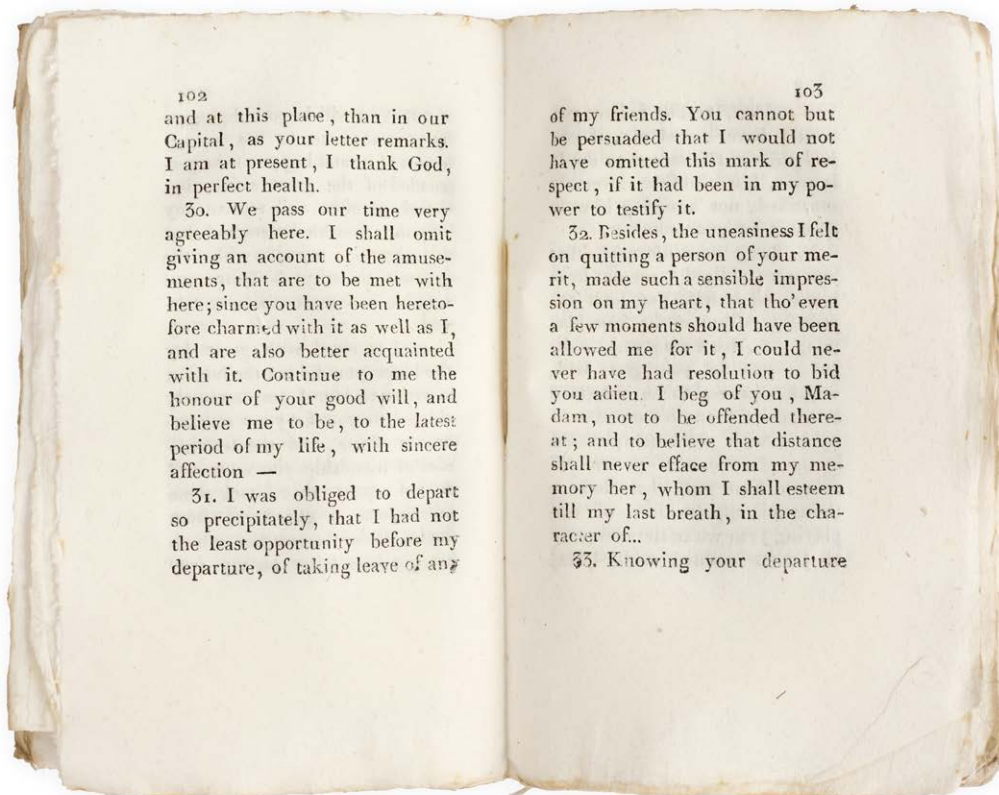 102
and at this place, than in our
Capital, as your letter remarks.
I am at present, I thank God,
in perfect health.
30. We pass our time very
agreeably here. I shall omit
giving an account of the amuse-
ments, that are to be met with
here; since you have been hereto-
fore charmed with it as well as I,
and are also better acquainted
with it. Continue to me the
honour of your good will, and
believe me to be, to the latest
period of my life, with sincere
affection —
31. I was obliged to depart
so precipitately, that I had not
the least opportunity before my
departure, of taking leave of any
103
of my friends. You cannot but
be persuaded that I would not
have omitted this mark of re-
spect, if it had been in my po-
wer to testify it.
32. Besides, the uneasiness I felt
on quitting a person of your me-
rit, made such a sensible impres-
sion on my heart, that tho' even
a few moments should have been
allowed me for it, I could ne-
ver have had resolution to bid
you adieu. I beg of you, Ma-
dam, not to be offended there-
at; and to believe that distance
shall never efface from my me-
mory her, whom I shall esteem
till my last breath, in the cha-
racter of...
33. Knowing your departure